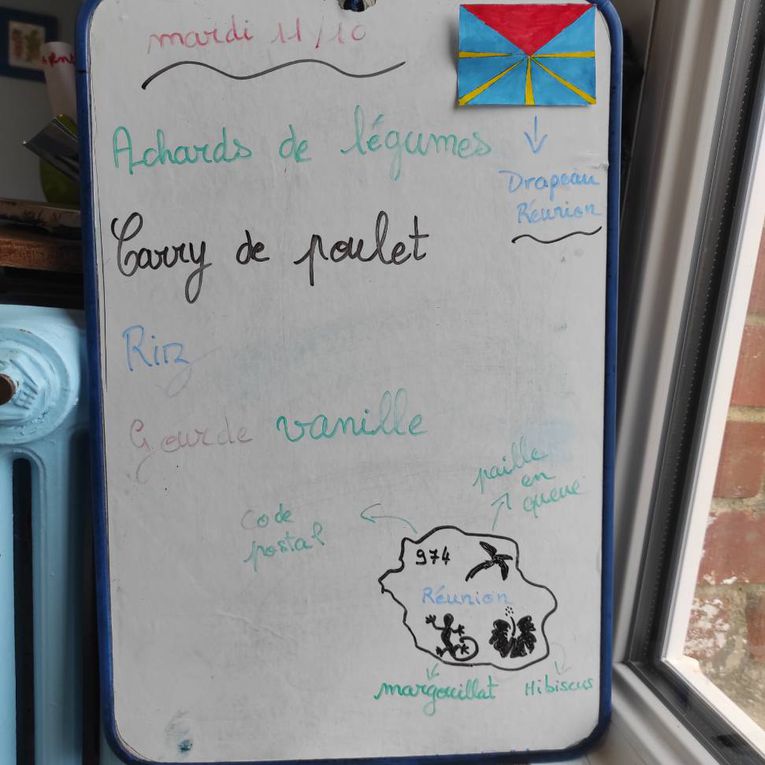 mardi 11/10
Achards de légumes
Drapeau
Réunion
Carry de poulet
Riz
Gourde vanille
paille
en
queue
Code
postal
974
Réunion
margouillat
Hibiscus